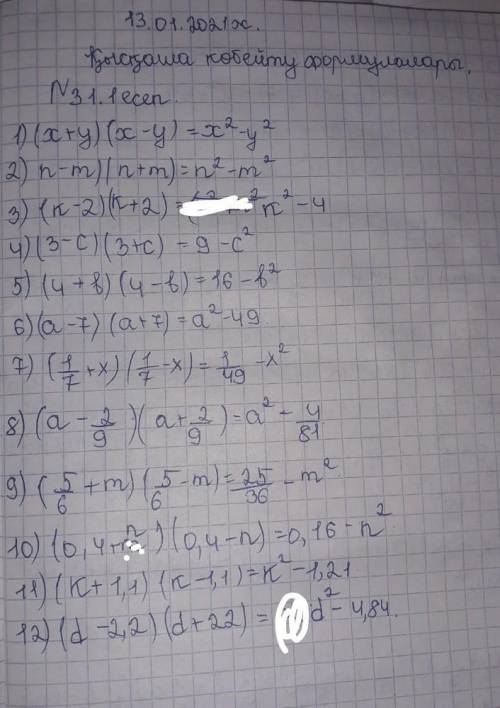 13.01.2021ж.
Қысқаша көбейту формулалары.
№31.1есеп.
1) (x+y)(x-y)=x²-y²
2) n-m)(n+m)=n²-m²
3) (к-2)(к+2)= к²-4
4) (3-c)(3+c)=9-c²
5) (4+b)(4-b)=16-b²
6) (a-7)(a+7)=a²-49
7) (1/7+x)(1/7-x)=1/49-x²
8) (a-2/9)(a+2/9)=a²-4/81
9) (5/6+m)(5/6-m)=25/36-m²
10) (0,4+n)(0,4-n)=0,16-n²
11) (к+1,1)(к-1,1)=к²-1,21
12) (d-2,2)(d+22)= d²-4,84.